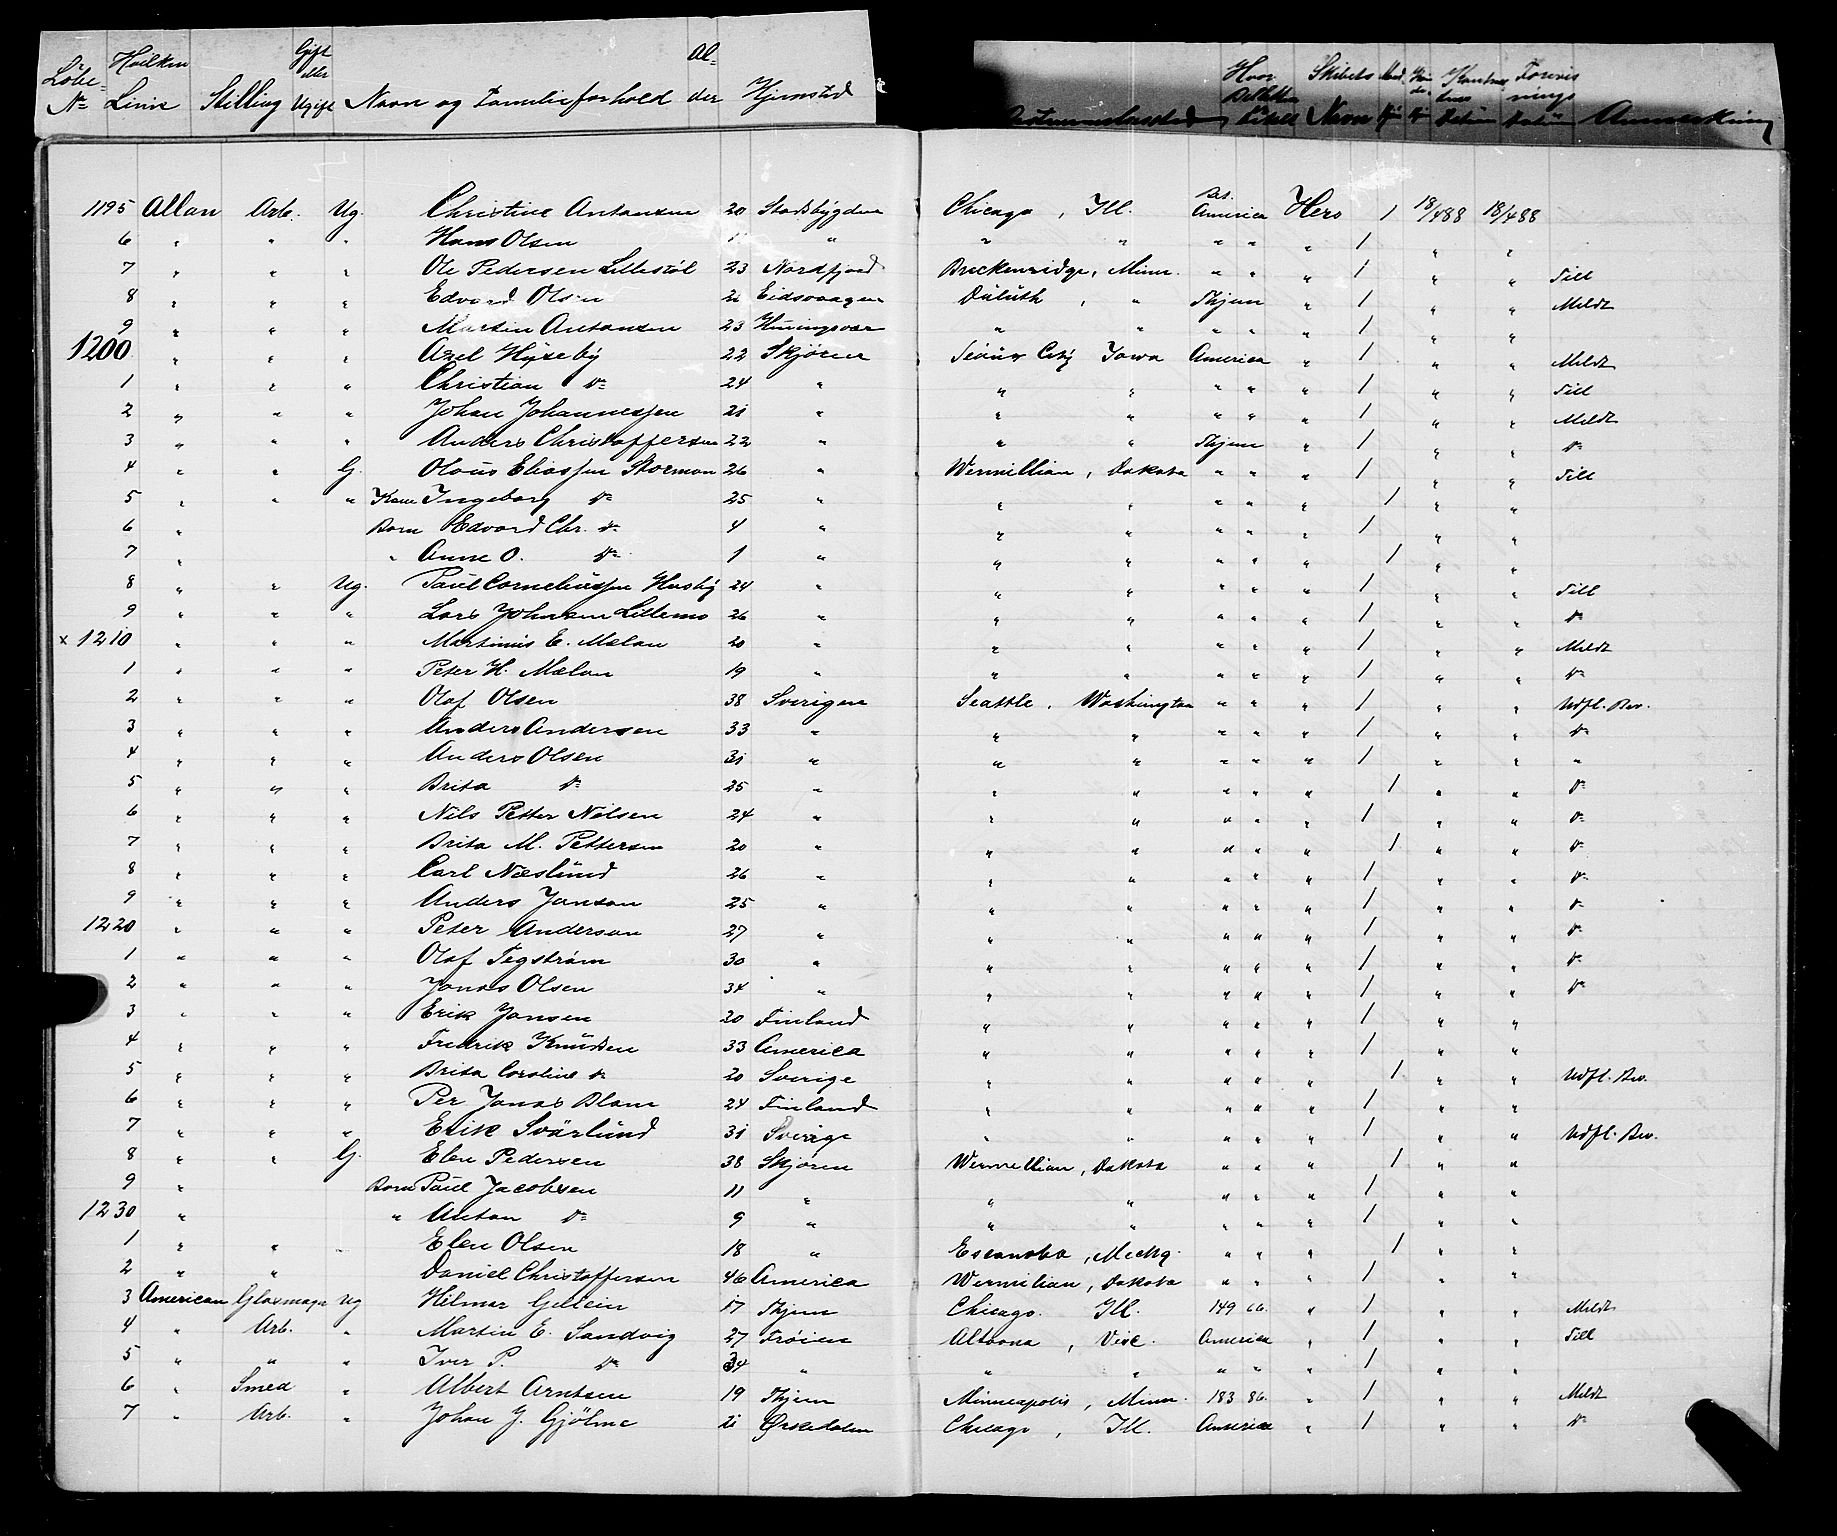 Løbe- Nr. Hvilken Linie Stilling Gift eller Ugift Navn og Familieforhold Al- der Hjemsted Bestemmelsessted Hvor Billetten Skibets Navn Anmerkning
1195 Allan Arb. Ug. Christine Antonsen 20 Stadsbygden Chicago, Ill. Bet. America Hero 1 18/4 88 18/4 88
6 " " " Hans Olsen " " " " " " " 1 " "
7 " " " Ole Pedersen Lillestöl 23 Nordfjord Breckenridge, Minn. " " " 1 " " Till
8 " " " Edvard Olsen 21 Eidsvaagen Duluth, " Thjem " 1 " " Meldt
9 " " " Martin Antonsen 23 Honingsvær " " " " " 1 " "
1200 " " " Axel Hyseby 22 Skjören Sioux City Iowa America " 1 " " Meldt
1 " " " Christian do 24 " " " " " " 1 " " Till
2 " " " Johan Johannessen 21 " " " " " " 1 " " Meldt
3 " " " Anders Christoffersen 22 " " " Thjem " 1 " " do
4 " " G. Olaus Eliassen Stormon 26 " Wermillian, Dakota " " " 1 " " Till
5 " " " Kone Ingeborg do 25 " " " " " " 1 " "
6 " Born Edvard Chr. do 4 " " " " " " 1 " "
7 " " Anne O. do 1 " " " " " " 1 " "
8 " " Ug. Paul Corneliussen Husby 24 " " " " " " 1 " " Till
9 " " " Lars Johnsen Lillemo 26 " " " " " " 1 " " do
x 1210 " " " Martinus E. Mælan 20 " " " " " " 1 " " Meldt
1 " " " Peter H. Mælan 19 " " " " " " 1 " " do
2 " " " Olof Olsen 38 Sverigen Seattle, Washington " " " 1 " " Udfl. Bev.
3 " " " Anders Andersen 33 " " " " " " 1 " " do
4 " " " Anders Olsen 31 " " " " " " 1 " " "
5 " " " Brita do 25 " " " " " " 1 " " do
6 " " " Nils Petter Nilsen 24 " " " " " " 1 " " do
7 " " " Brita M. Pettersen 20 " " " " " " 1 " " do
8 " " " Carl Næslund 26 " " " " " " 1 " " do
9 " " " Anders Janson 25 " " " " " " 1 " " do
1220 " " " Peter Anderson 27 " " " " " " 1 " " do
1 " " " Olof Tegström 30 " " " " " " 1 " " do
2 " " " Jonas Olsen 34 " " " " " " 1 " " do
3 " " " Erik Jansen 20 Finland " " " " " 1 " "
4 " " " Fredrik Knudsen 33 America " " " " " 1 " "
5 " " " Brita Caroline do 20 Sverige " " " " " 1 " " Udfl. Bev.
6 " " " Per Jonas Blom 24 Finland " " " " " 1 " "
7 " " " Erik Svärlund 31 Sverige " " " " " 1 " " Udfl. Bev.
8 " " G. Elen Pedersen 38 Skjören Wermellian, Dakota " " " 1 " "
9 " Born Paul Jacobsen 11 " " " " " " 1 " "
1230 " " Anton do 9 " " " " " " 1 " "
1 " " Elen Olsen 18 " Escanaba, Michg. " " " 1 " "
2 " " Daniel Christoffersen 46 America Wermilian, Dakota " " " 1 " "
3 American Glasmager Ug Hilmar Gellein 17 Thjem Chicago. Ill. 149 66. " 1 " " Meldt
4 " Arb. " Martin E. Sandvig 27 Fröien Altoona, Visc. America " 1 " " Till
5 " " " Iver P. do 34 " " " " " " 1 " "
6 " Smed " Albert Arntsen 19 Thjem Minneapolis, Minn. 183 86. " 1 " " Meldt
7 " Arb. " Johan J. Gjölme 21 Ørkedalen Chicago, Ill. America " 1 " " do